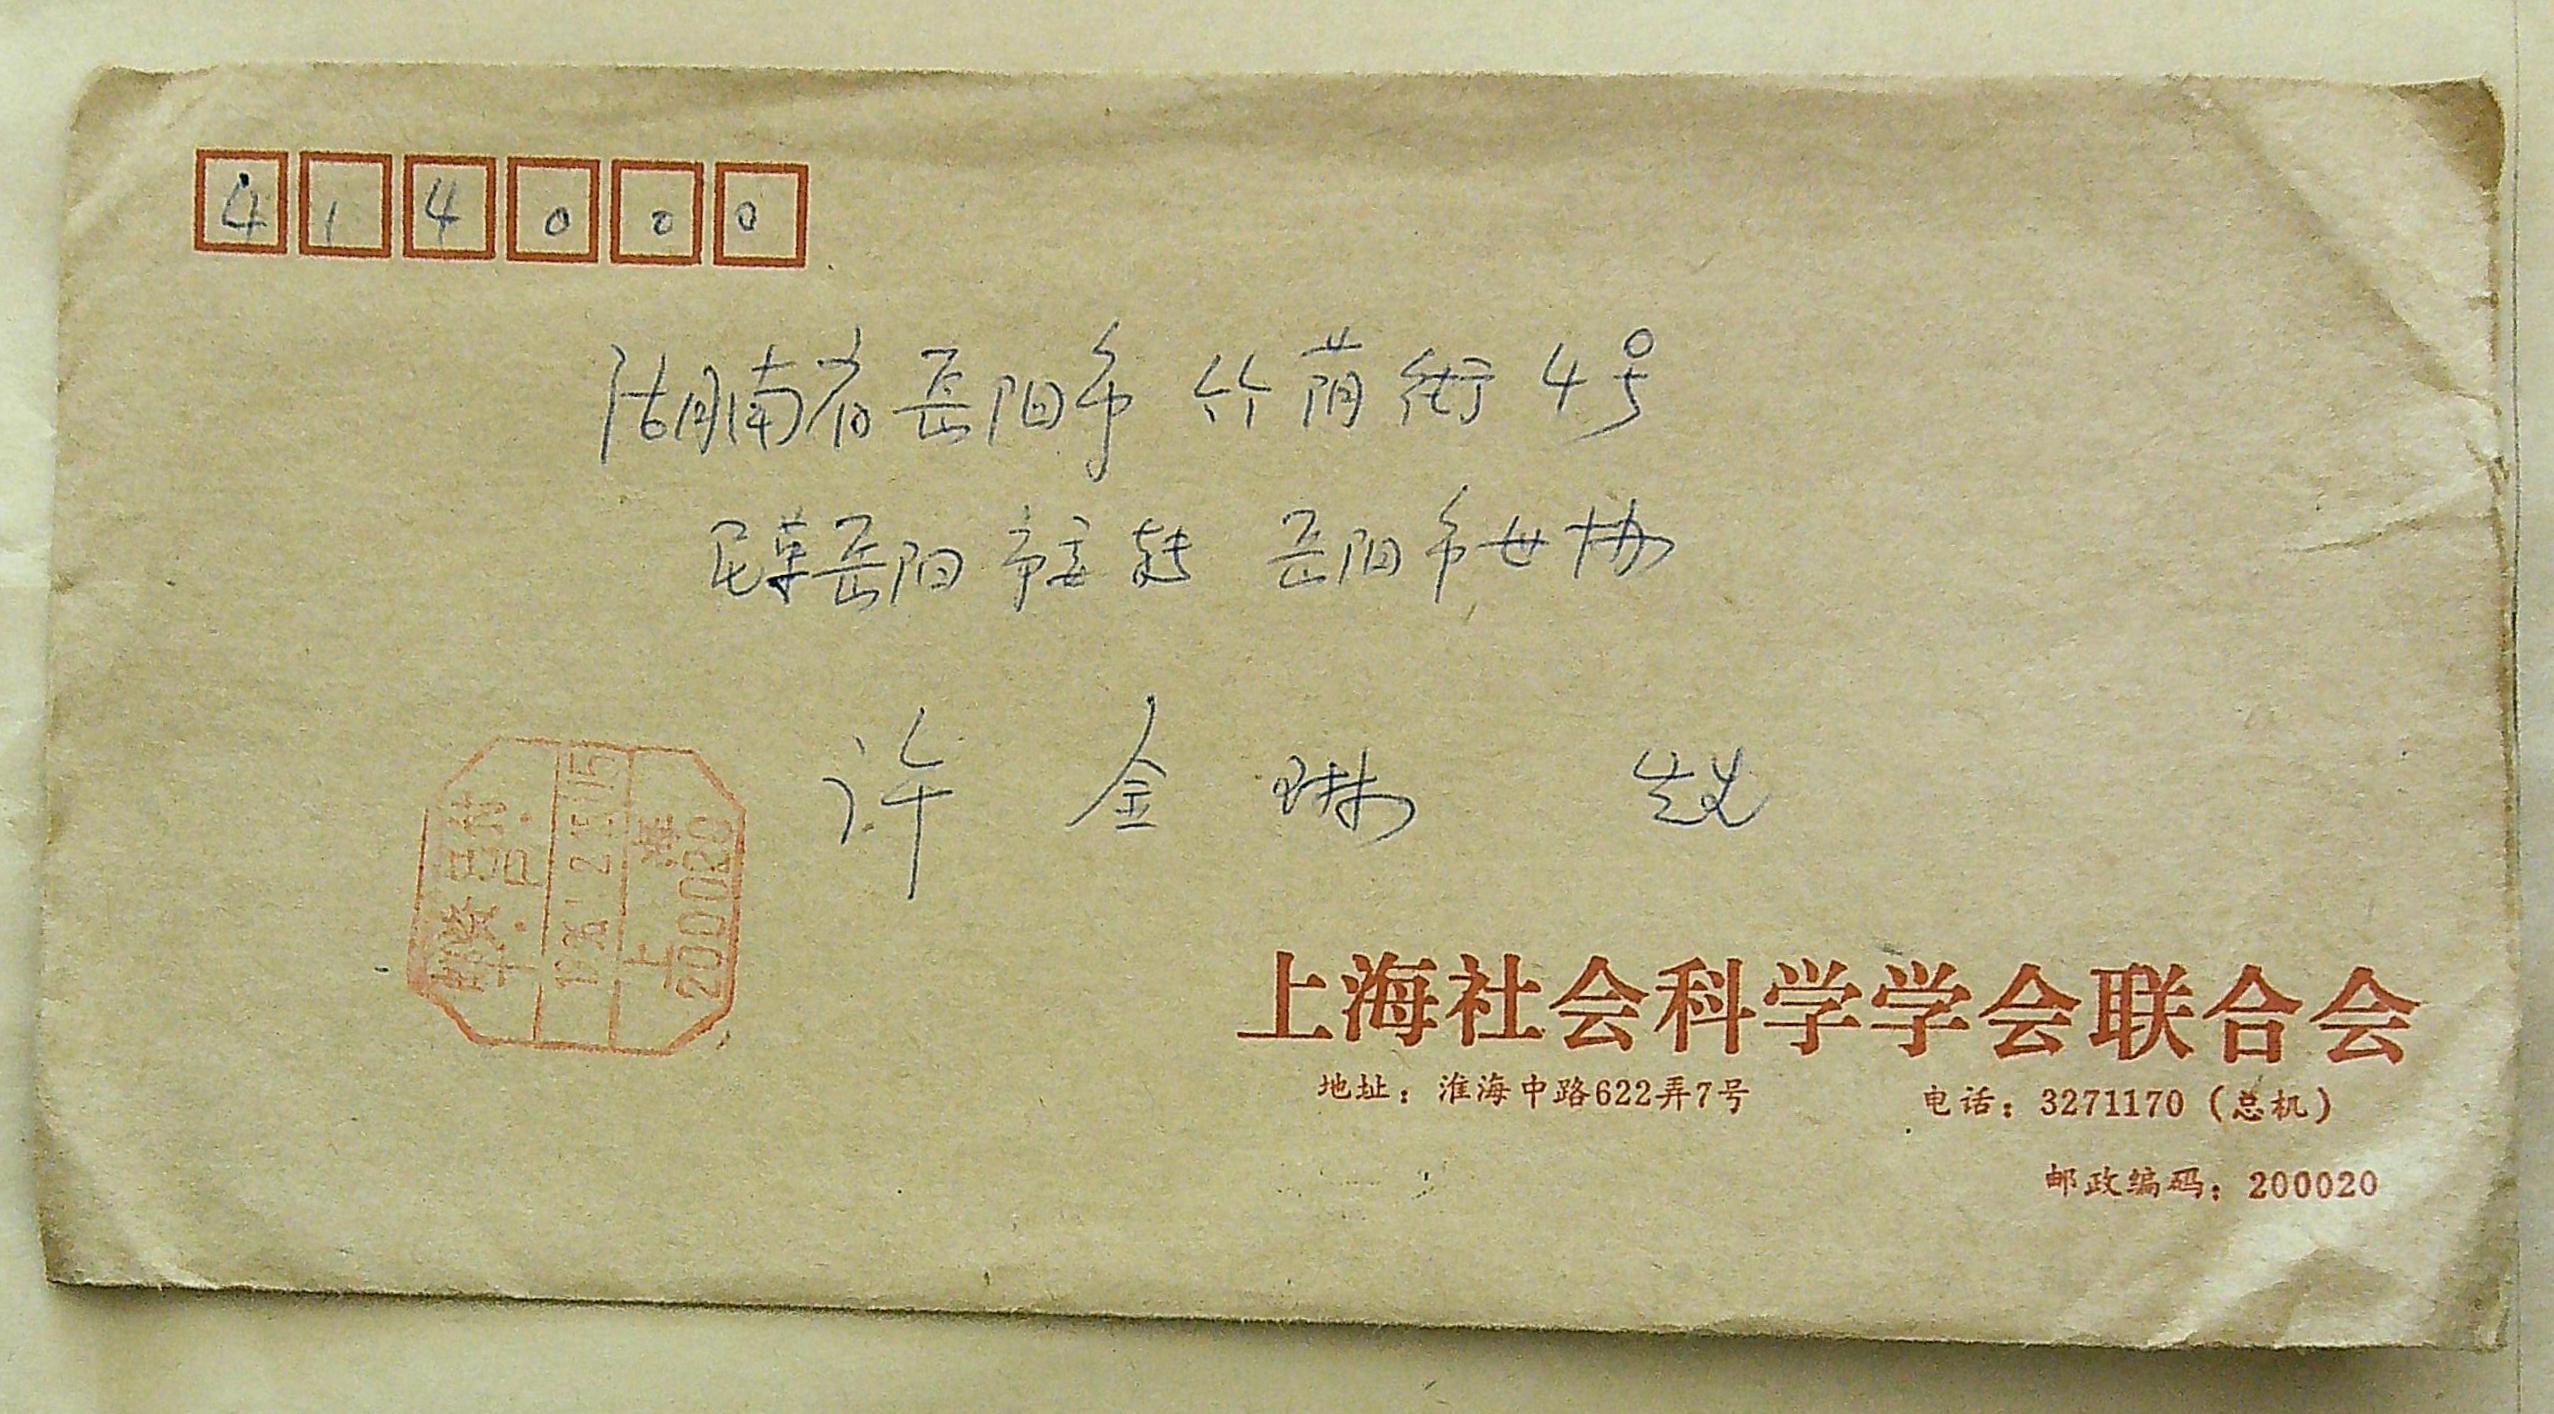 414000
湖南省岳阳市竹荫街4号
民革岳阳市委转 岳阳市世协
许金琳 启
邮资已付
上海
200020
上海社会科学学会联合会
地址：淮海中路622弄7号 电话：3271170（总机）
邮政编码：200020